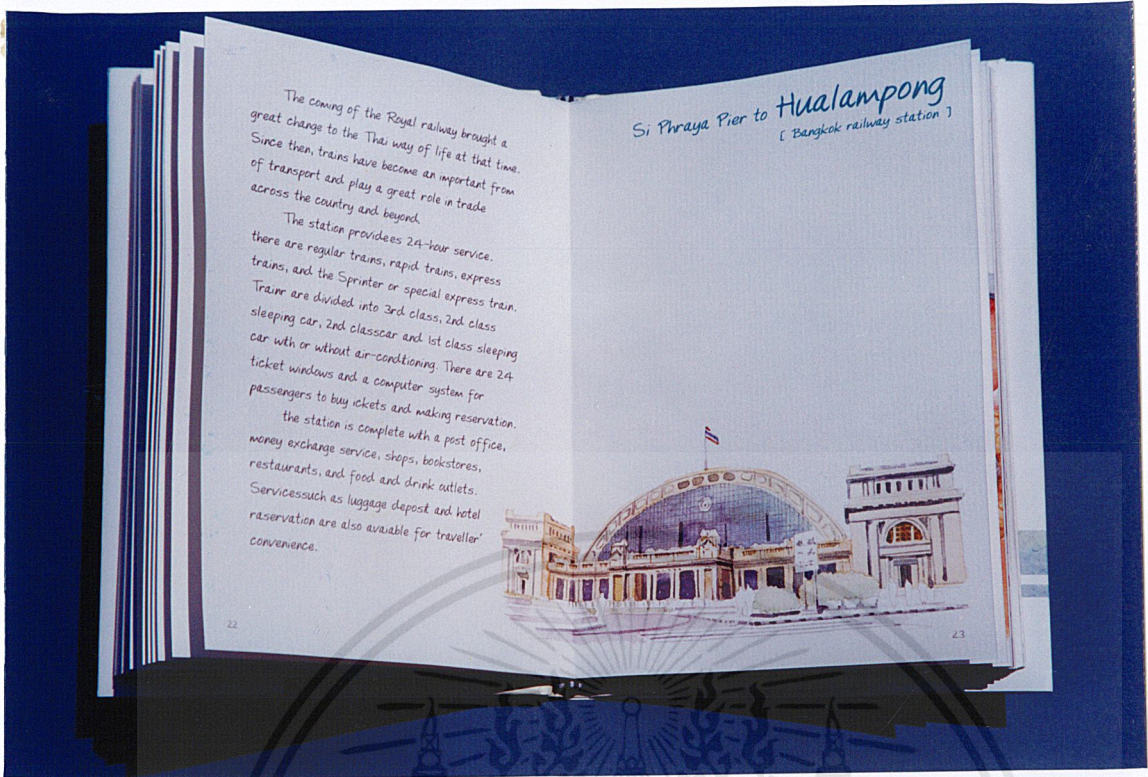 The coming of the Royal railway brought a
great change to the Thai way of life at that time.
Since then, trains have become an important from
of transport and play a great role in trade
across the country and beyond.
The station providees 24-hour service.
there are regular trains, rapid trains, express
trains, and the Sprinter or special express train.
Trainr are divided into 3rd class, 2nd class
sleeping car, 2nd classcar and 1st class sleeping
car wth or wthout air-condtioning. There are 24
ticket windows and a computer system for
passengers to buy ickets and making reservation.
the station is complete wth a post office,
money exchange service, shops, bookstores,
restaurants, and food and drink outlets.
Servicessuch as luggage depost and hotel
raservation are also avaiable for traveller'
convenience.
22
Si Phraya Pier to Hualampong
[ Bangkok railway station ]
23